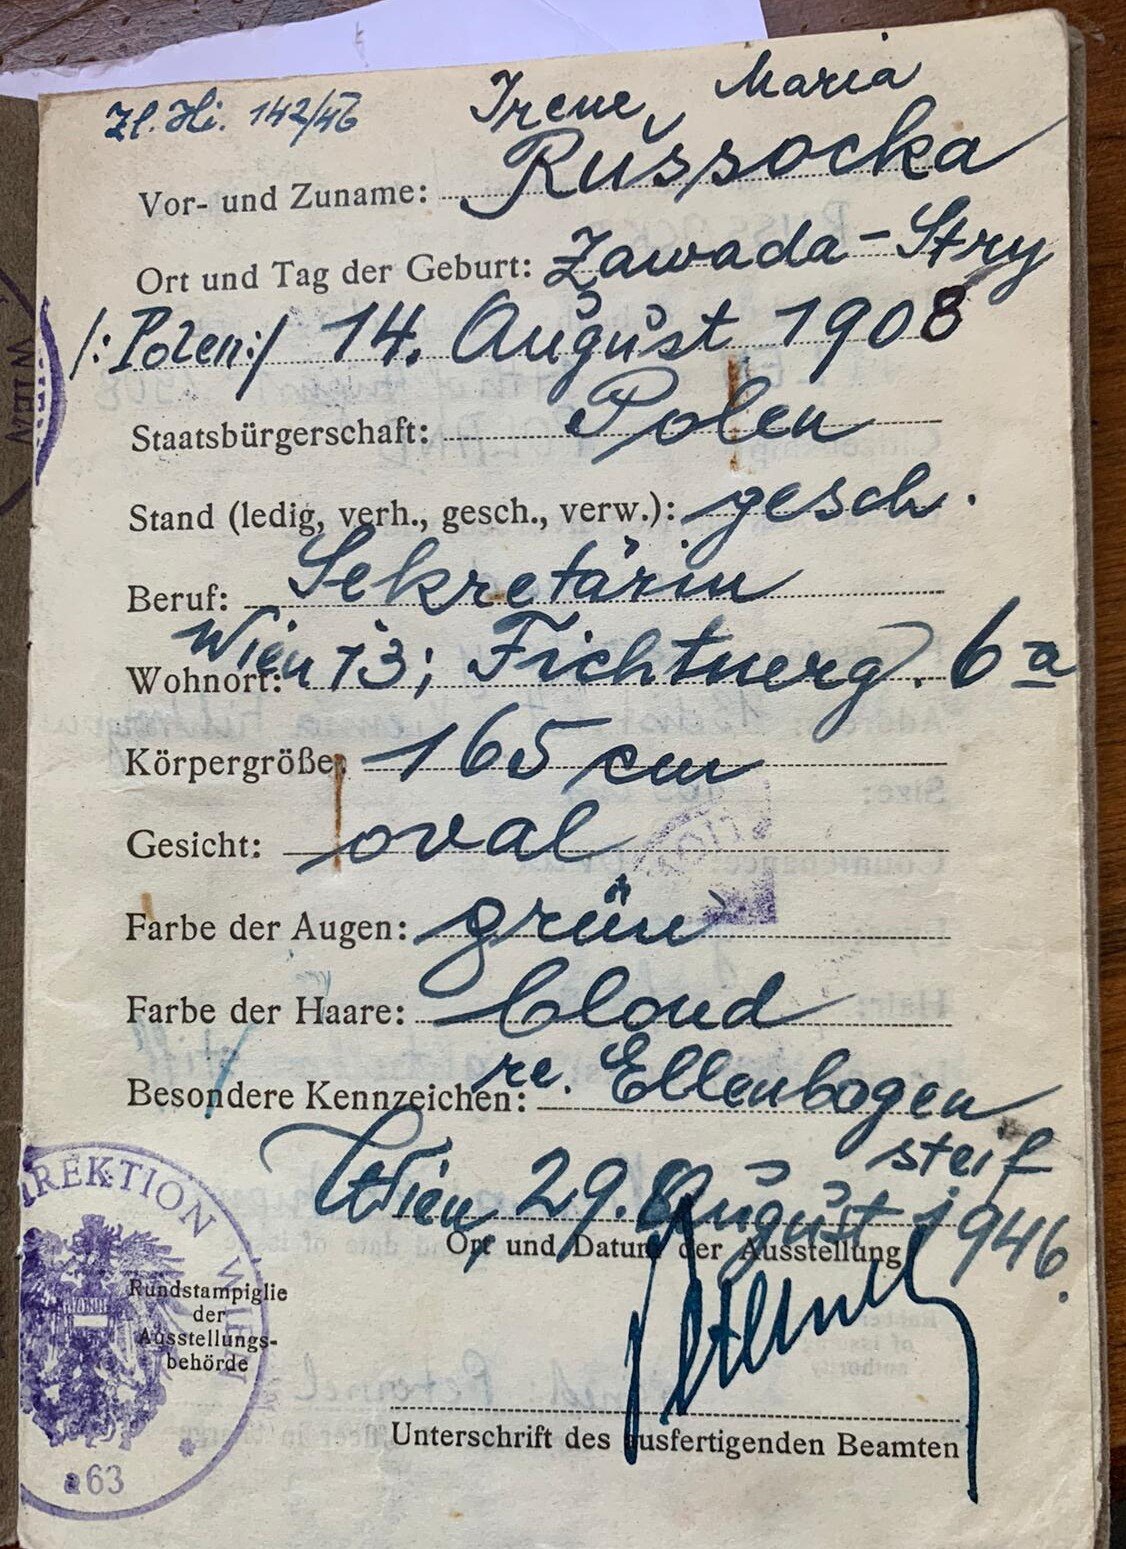 Zl. Hi. 142/46
Irene Maria
Vor- und Zuname: Russocka
Ort und Tag der Geburt: Zawada-Stry
/:Polen:/ 14. August 1908
Staatsbürgerschaft: Polen
Stand (ledig, verh., gesch., verw.): gesch.
Beruf: Sekretärin
Wohnort: Wien 13; Fichtnerg. 6a
Körpergröße: 165 cm
Gesicht: oval
Farbe der Augen: grün
Farbe der Haare: blond
Besondere Kennzeichen: re. Ellenbogen
steif
Wien, 29. August 1946.
Ort und Datum der Ausstellung
Rundstampiglie
der
Ausstellungs-
behörde
Unterschrift des ausfertigenden Beamten
REKTION WIEN
a63
WIEN